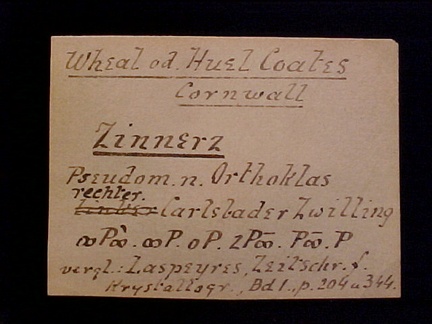 Wheal od. Huel Coates
Cornwall
Zinnerz
Pseudom. n. Orthoklas
rechter.
linker Carlsbader Zwilling
∞P∞. ∞P. oP. 2P∞. P∞. P
vergl.: Laspeyres, Zeitschr. f.
Krystallogr., Bd 1., p. 204 u 344.